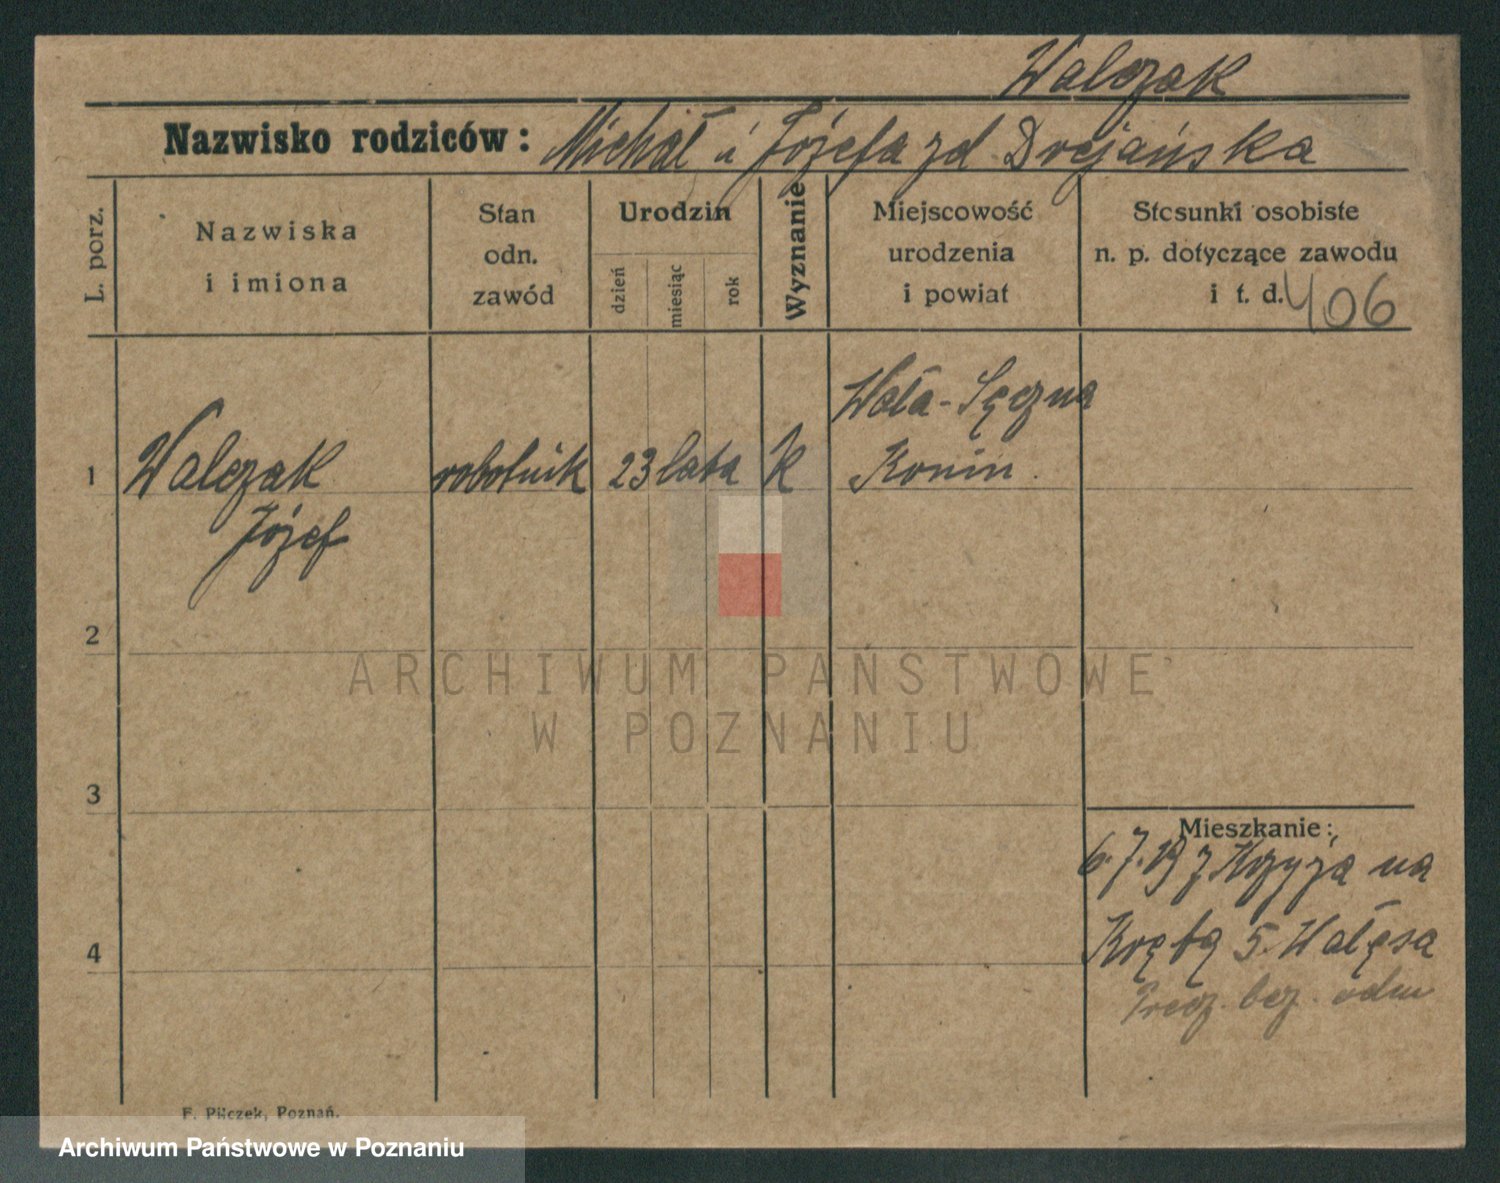 Walczak
Nazwisko rodziców: Michał i Józefa zd. Drejańska
L. porz.
Nazwiska
i imiona
Stan
odn.
zawód
Urodzin
dzień
miesiąc
rok
Wyznanie
Miejscowość
urodzenia
i powiat
Stosunki osobiste
n. p. dotyczące zawodu
i t. d.
406
1
Walczak
Józef
robotnik
23 lata
k
Wola-Łęczna
Konin.
2
3
4
Mieszkanie:
6.7.19 z Krzyża na
5. Wałęsa
bez. odm
F. Pilczek, Poznań.
ARCHIWUM PAŃSTWOWE
W POZNANIU
Archiwum Państwowe w Poznaniu